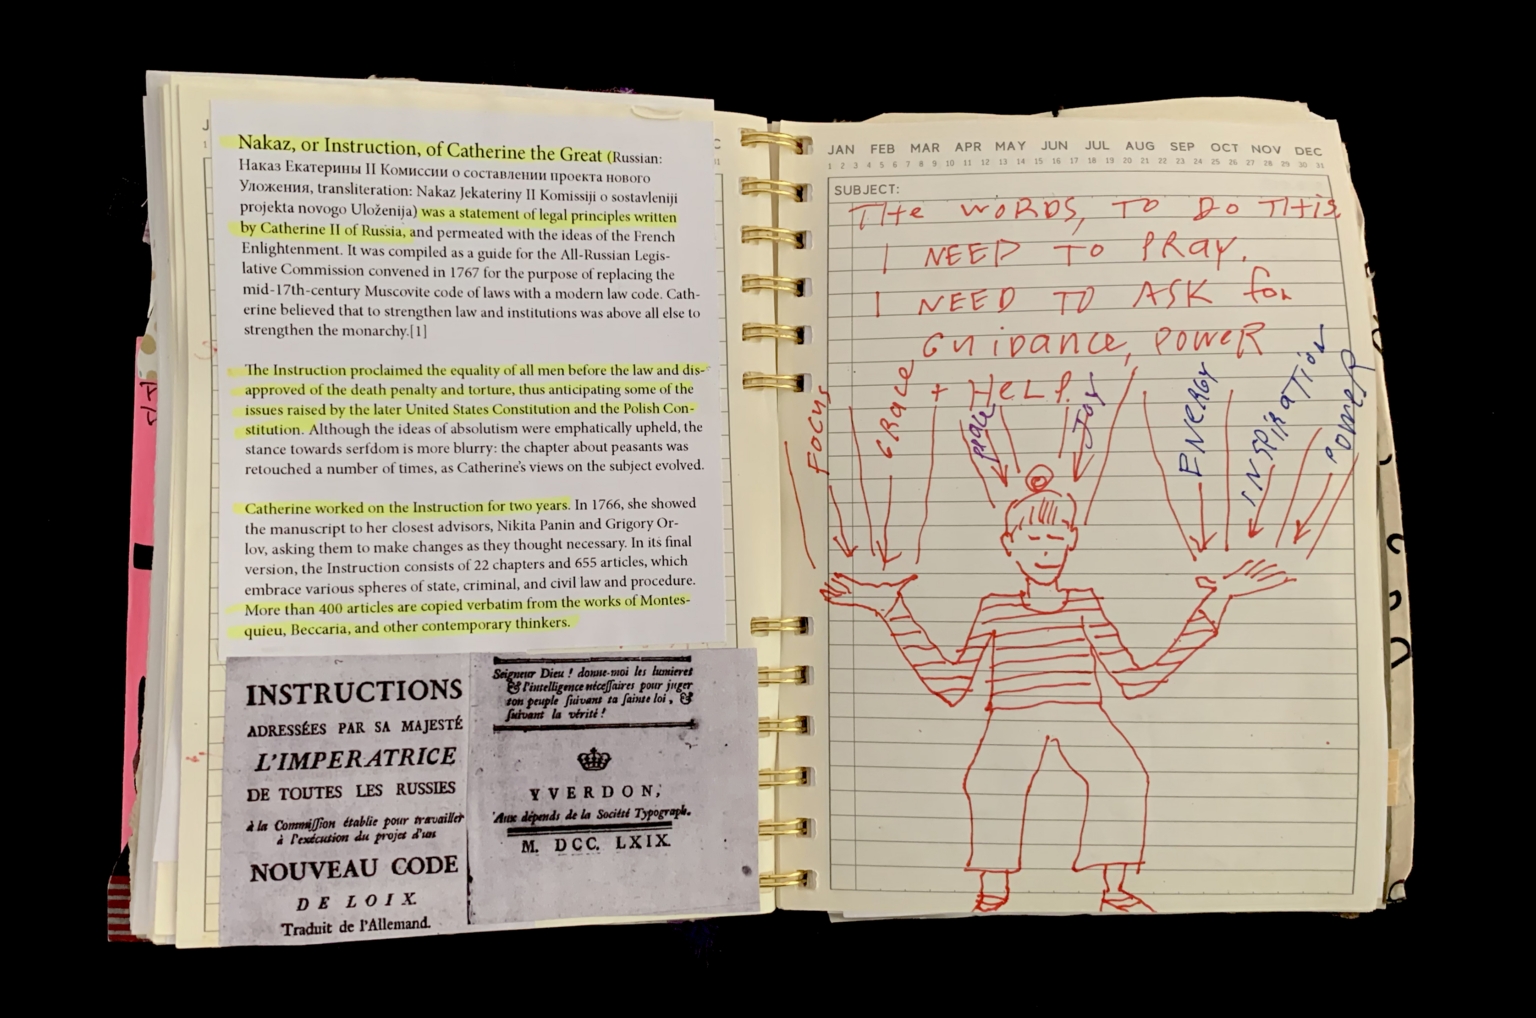 Nakaz, or Instruction, of Catherine the Great (Russian:
Наказ Екатерины II Комиссии о составлении проекта нового
Уложения, transliteration: Nakaz Jekateriny II Komissiji o sostavleniji
projekta novogo Uloženija) was a statement of legal principles written
by Catherine II of Russia, and permeated with the ideas of the French
Enlightenment. It was compiled as a guide for the All-Russian Legis-
lative Commission convened in 1767 for the purpose of replacing the
mid-17th-century Muscovite code of laws with a modern law code. Cath-
erine believed that to strengthen law and institutions was above all else to
strengthen the monarchy.[1]
The Instruction proclaimed the equality of all men before the law and dis-
approved of the death penalty and torture, thus anticipating some of the
issues raised by the later United States Constitution and the Polish Con-
stitution. Although the ideas of absolutism were emphatically upheld, the
stance towards serfdom is more blurry: the chapter about peasants was
retouched a number of times, as Catherine's views on the subject evolved.
Catherine worked on the Instruction for two years. In 1766, she showed
the manuscript to her closest advisors, Nikita Panin and Grigory Or-
lov, asking them to make changes as they thought necessary. In its final
version, the Instruction consists of 22 chapters and 655 articles, which
embrace various spheres of state, criminal, and civil law and procedure.
More than 400 articles are copied verbatim from the works of Montes-
quieu, Beccaria, and other contemporary thinkers.
INSTRUCTIONS
ADRESSÉES PAR SA MAJESTÉ
L'IMPERATRICE
DE TOUTES LES RUSSIES
à la Commiſſion établie pour travailler
à l'exécution du projet d'un
NOUVEAU CODE
DE LOIX.
Traduit de l'Allemand.
Seigneur Dieu ! donne-moi les lumieres
& l'intelligence néceſſaires pour juger
ton peuple ſuivant ta ſainte loi, &
ſuivant la vérité !
YVERDON,
Aux dépends de la Société Typograph.
M. DCC. LXIX.
JAN FEB MAR APR MAY JUN JUL AUG SEP OCT NOV DEC
1 2 3 4 5 6 7 8 9 10 11 12 13 14 15 16 17 18 19 20 21 22 23 24 25 26 27 28 29 30 31
SUBJECT:
THE WORDS, TO DO THIS
I NEED TO PRAY.
I NEED TO ASK for
GUIDANCE, POWER
+ HELP.
FOCUS
GRACE
peace
JOY
ENERGY
INSPIRATION
POWER